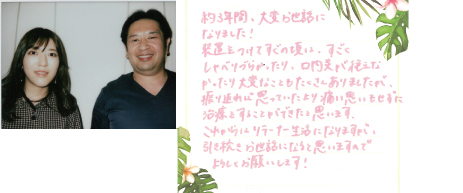 約3年間、大変お世話に
なりました!
装置をつけてすぐの頃は、すごく
しゃべりづらかったり、口内炎が絶えな
かったり大変なこともたくさんありましたが、
振り返れば思っていたより痛い思いもせずに
治療をすることができたと思います。
これからはリテーナー生活になりますが、
引き続きお世話になると思いますので
よろしくお願いします!